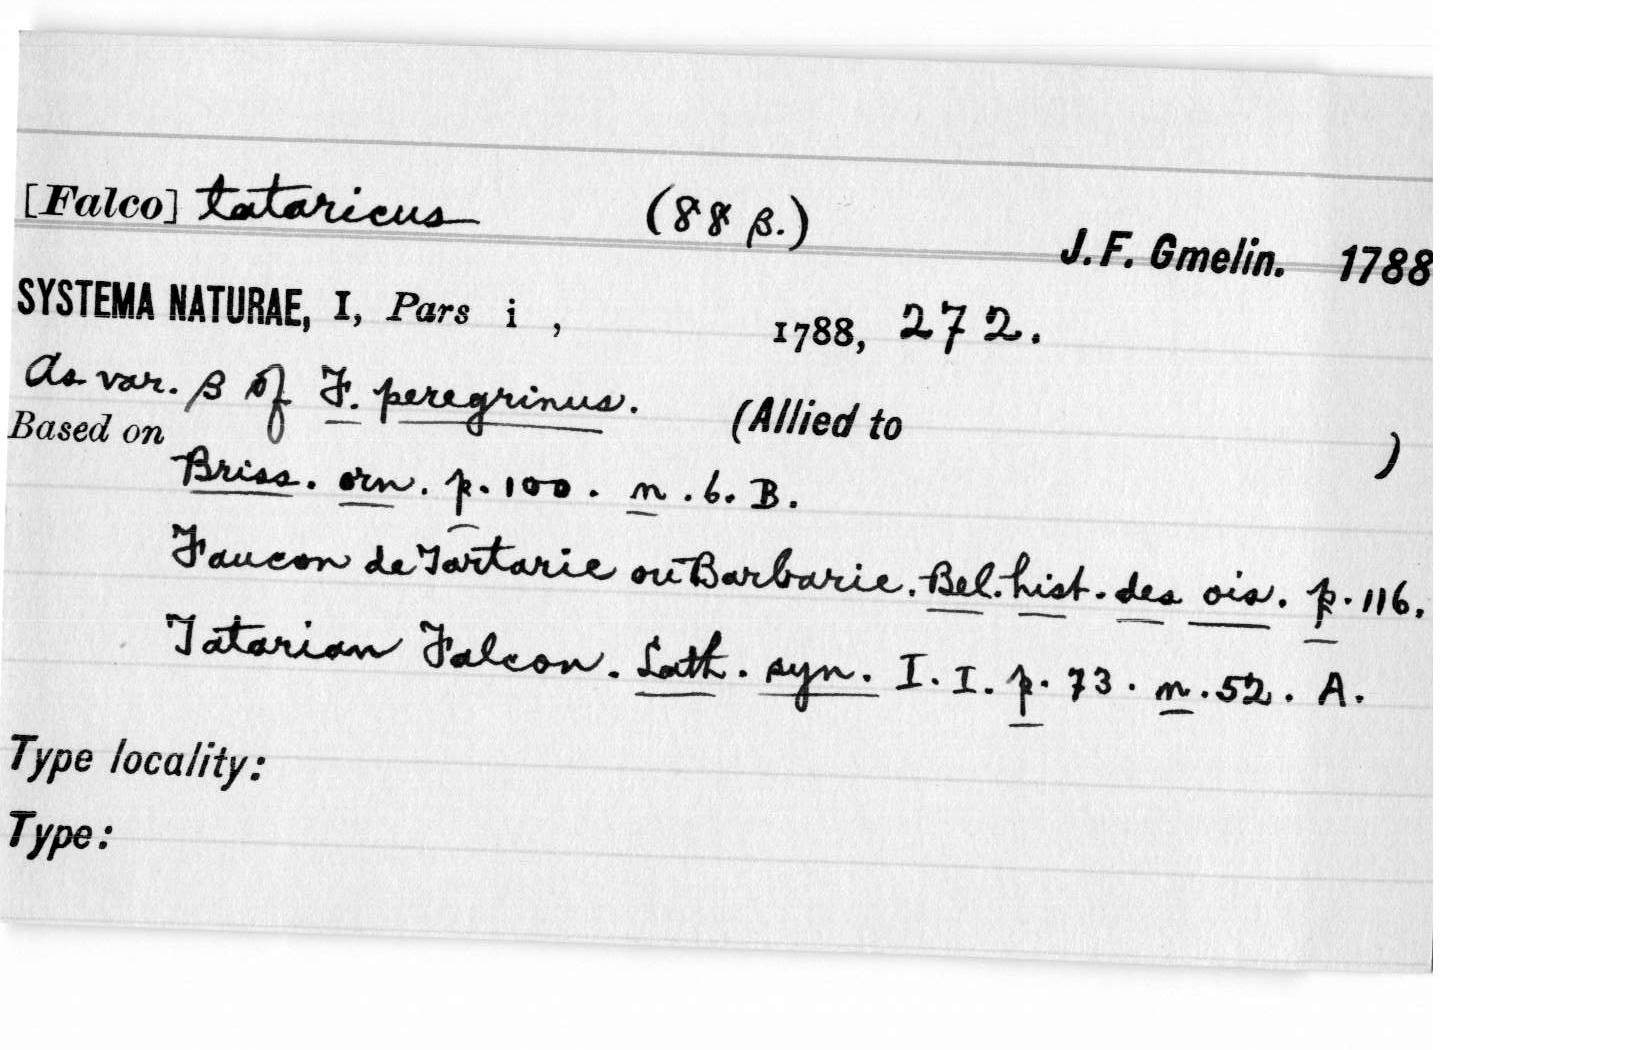 [Falco] tataricus (88 β.)
J. F. Gmelin. 1788
SYSTEMA NATURAE, I, Pars i , 1788, 272.
As var. β of F. peregrinus. (Allied to )
Based on
Briss. orn. p. 100. n. 6. B.
Faucon de Tartarie ou Barbarie. Bel. hist. des ois. p. 116.
Tatarian Falcon. Lath. syn. I. I. p. 73. n. 52. A.
Type locality:
Type: